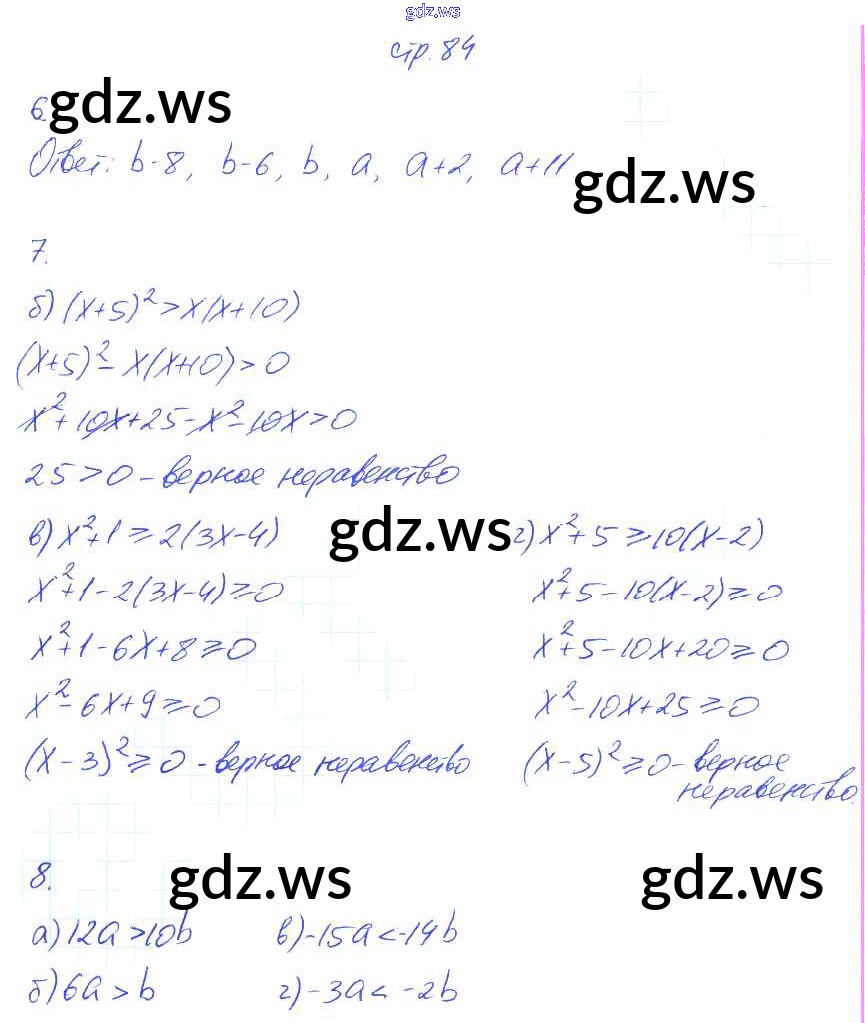 gdz.ws
стр. 84
6. gdz.ws
Ответ: b-8, b-6, b, a, a+2, a+11
gdz.ws
7.
б) (x+5)²>x(x+10)
(x+5)²-x(x+10)>0
x²+10x+25-x²-10x>0
25>0 - верное неравенство
gdz.ws
в) x²+1≥2(3x-4)
x²+1-2(3x-4)≥0
x²+1-6x+8≥0
x²-6x+9≥0
(x-3)²≥0 - верное неравенство
г) x²+5≥10(x-2)
x²+5-10(x-2)≥0
x²+5-10x+20≥0
x²-10x+25≥0
(x-5)²≥0 - верное
неравенство.
8. gdz.ws gdz.ws
а) 12a>10b в) -15a<-14b
б) 6a>b г) -3a<-2b